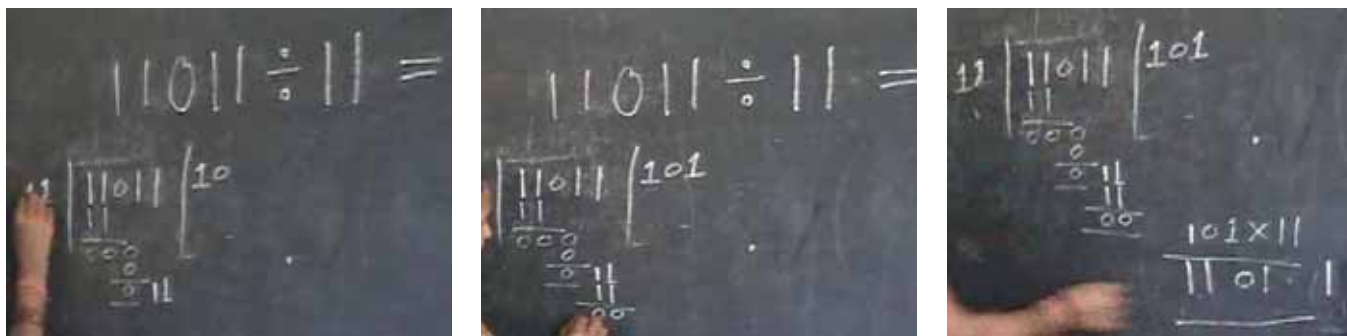 11011 ÷ 11 =
11 11011 10
11
000
0
0 11
11011 ÷ 11 =
11011 101
11
000
0
0 11
11
00
11 11011 101
11
000
0
0 11
11
00
101 × 11
1101 1